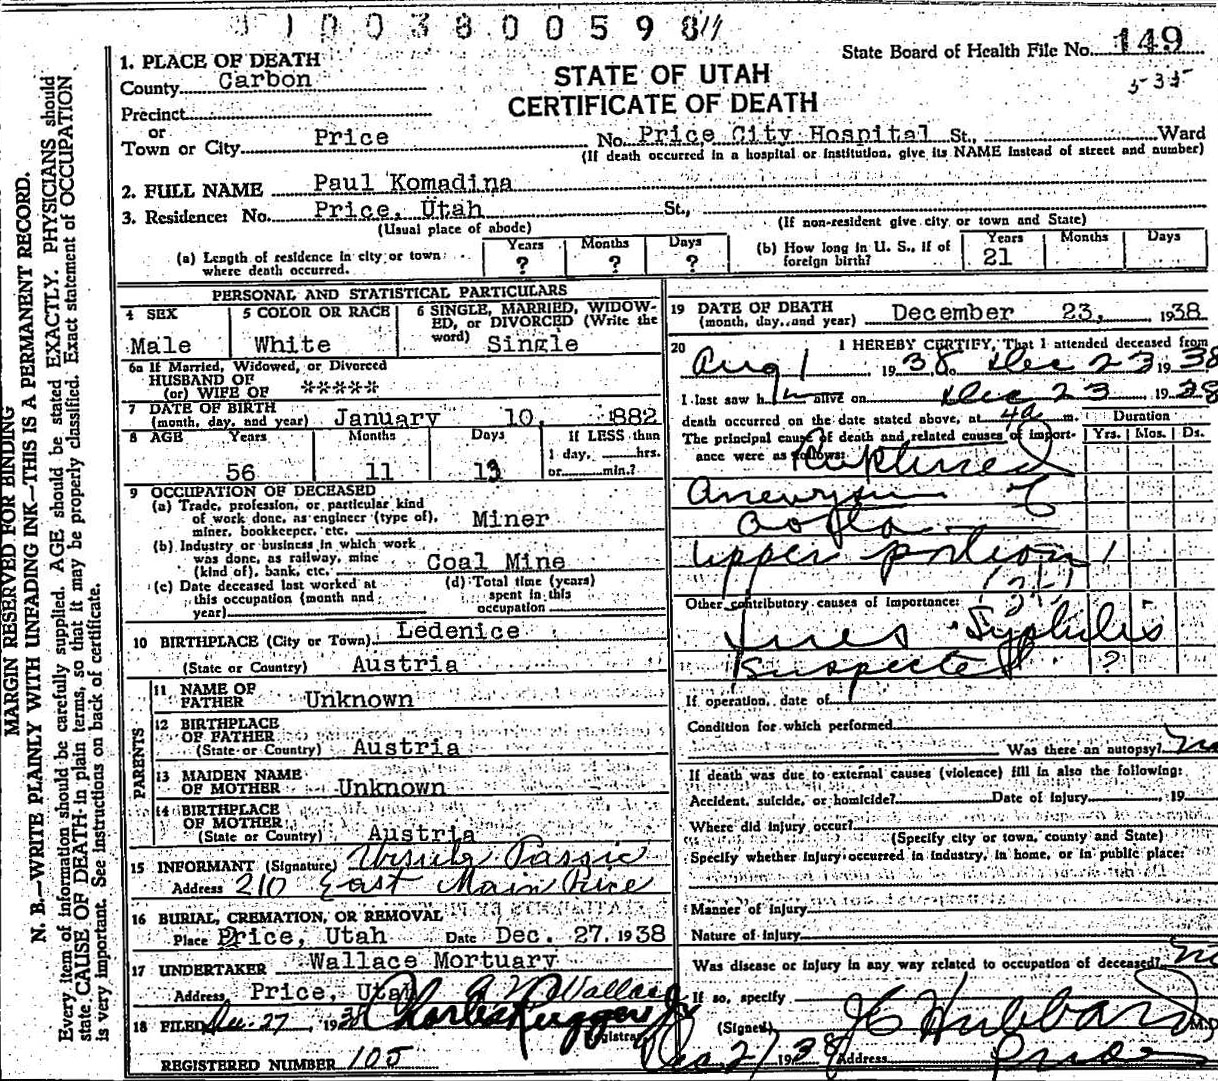 3 1 0 0 3 8 0 0 5 9 8
State Board of Health File No. 149
535
1. PLACE OF DEATH
County Carbon
STATE OF UTAH
CERTIFICATE OF DEATH
Precinct
or
Town or City Price No. Price City Hospital St., Ward
(If death occurred in a hospital or institution, give its NAME instead of street and number)
2. FULL NAME Paul Komadina
3. Residence: No. Price, Utah St.,
(Usual place of abode) (If non-resident give city or town and State)
(a) Length of residence in city or town where death occurred. Years ? Months ? Days ?
(b) How long in U. S., if of foreign birth? Years 21 Months Days
PERSONAL AND STATISTICAL PARTICULARS
4 SEX Male
5 COLOR OR RACE White
6 SINGLE, MARRIED, WIDOWED, or DIVORCED (Write the word) Single
6a If Married, Widowed, or Divorced
HUSBAND OF
(or) WIFE OF *****
7 DATE OF BIRTH
(month, day, and year) January 10, 1882
8 AGE Years Months Days If LESS than
1 day, hrs.
56 11 13 or min.?
9 OCCUPATION OF DECEASED
(a) Trade, profession, or particular kind
of work done, as engineer (type of),
miner, bookkeeper, etc. Miner
(b) Industry or business in which work
was done, as railway, mine
(kind of), bank, etc. Coal Mine
(c) Date deceased last worked at
this occupation (month and
year)
(d) Total time (years)
spent in this
occupation
10 BIRTHPLACE (City or Town) Ledenice
(State or Country) Austria
PARENTS
11 NAME OF
FATHER Unknown
12 BIRTHPLACE
OF FATHER
(State or Country) Austria
13 MAIDEN NAME
OF MOTHER Unknown
14 BIRTHPLACE
OF MOTHER
(State or Country) Austria
15 INFORMANT (Signature) Ursula
Address 210 East Main Price
16 BURIAL, CREMATION, OR REMOVAL
Place Price, Utah Date Dec. 27, 1938
17 UNDERTAKER Wallace Mortuary
Address Price, Utah Wallace
18 FILED Dec. 27, 1938 Charles Ruggeri Jr
Registrar
REGISTERED NUMBER 105
19 DATE OF DEATH
(month, day, and year) December 23, 1938
20 I HEREBY CERTIFY, That I attended deceased from
Aug 1 1938 Dec 23 1938
I last saw h im alive on Dec 23 1938
death occurred on the date stated above, at 4a m. Duration
The principal cause of death and related causes of importance were as follows: Yrs. Mos. Ds.
Ruptured
Aneurysm of
aorta
upper portion
Other contributory causes of importance:
Lues Syphilis
Suspected ?
If operation, date of
Condition for which performed
Was there an autopsy? no
If death was due to external causes (violence) fill in also the following:
Accident, suicide, or homicide? Date of injury 19
Where did injury occur?
(Specify city or town, county and State)
Specify whether injury occurred in industry, in home, or in public place:
Manner of injury
Nature of injury
Was disease or injury in any way related to occupation of deceased? no
If so, specify
(Signed) JC Hubbard M.D.
Dec 27 1938 Address Price
MARGIN RESERVED FOR BINDING
N. B.—WRITE PLAINLY WITH UNFADING INK—THIS IS A PERMANENT RECORD.
Every item of information should be carefully supplied. AGE should be stated EXACTLY. PHYSICIANS should
state CAUSE OF DEATH in plain terms, so that it may be properly classified. Exact statement of OCCUPATION
is very important. See instructions on back of certificate.